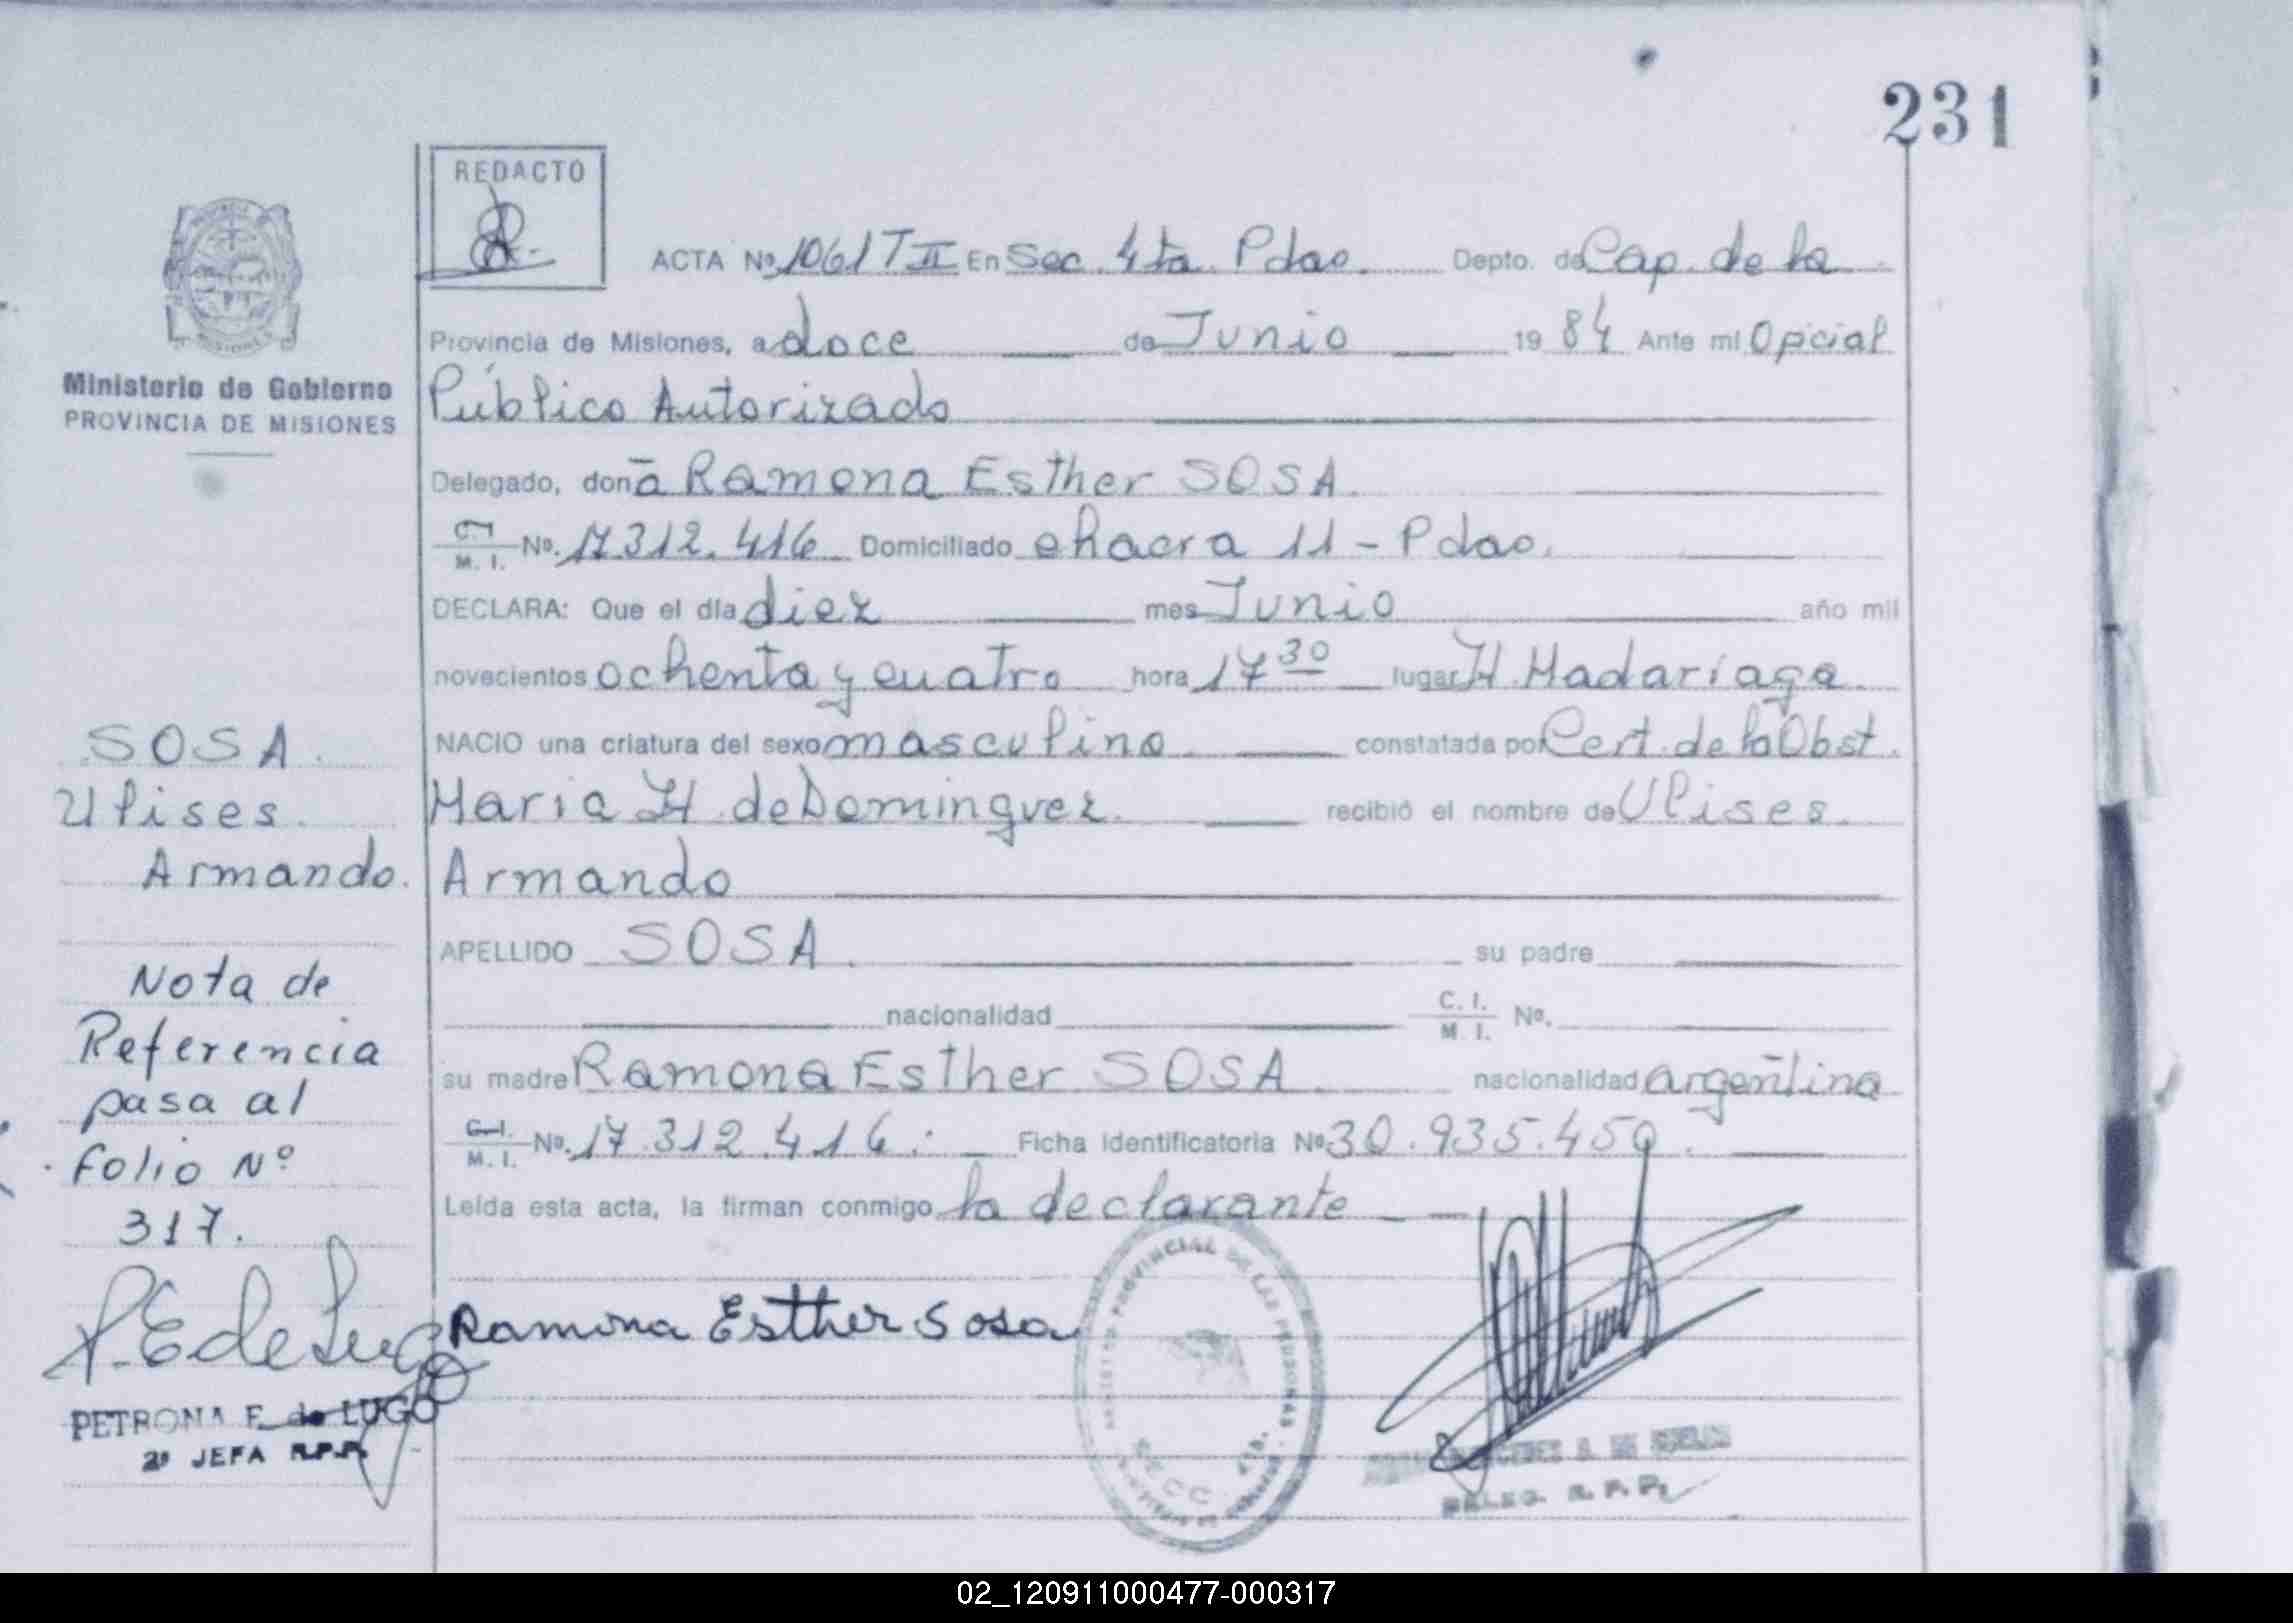 231
REDACTO
ACTA Nº 1061 T II En Sec. 4ta. Pdas. Depto. de Cap. de la
Provincia de Misiones, a doce de Junio 19 84 Ante mí Oficial
Ministerio de Gobierno
PROVINCIA DE MISIONES
Público Autorizado
Delegado, don a Ramona Esther SOSA.
C. I. M. I. Nº. 17.312.416 Domiciliado chacra 11 - Pdas.
DECLARA: Que el día diez mes Junio año mil
novecientos ochenta y cuatro hora 17 30 lugar H. Madariaga.
NACIO una criatura del sexo masculino. constatada por Cert. de la Obst.
Maria H. de Dominguez. recibió el nombre de Ulises.
Armando
APELLIDO SOSA. su padre
nacionalidad C. I. M. I. Nº.
su madre Ramona Esther SOSA. nacionalidad argentina
C. I. M. I. Nº. 17.312.416. Ficha Identificatoria Nº 30.935.459.
Leída esta acta, la firman conmigo la declarante
SOSA.
Ulises.
Armando.
Nota de
Referencia
pasa al
folio Nº
317.
P. E de Lugo
PETRONA E. de LUGO
2º JEFA R.P.P.
Ramona Esther Sosa
PROVINCIAL DE LAS PERSONAS
SECC. 4TA.
DELEG. R. P. P.
02_120911000477-000317